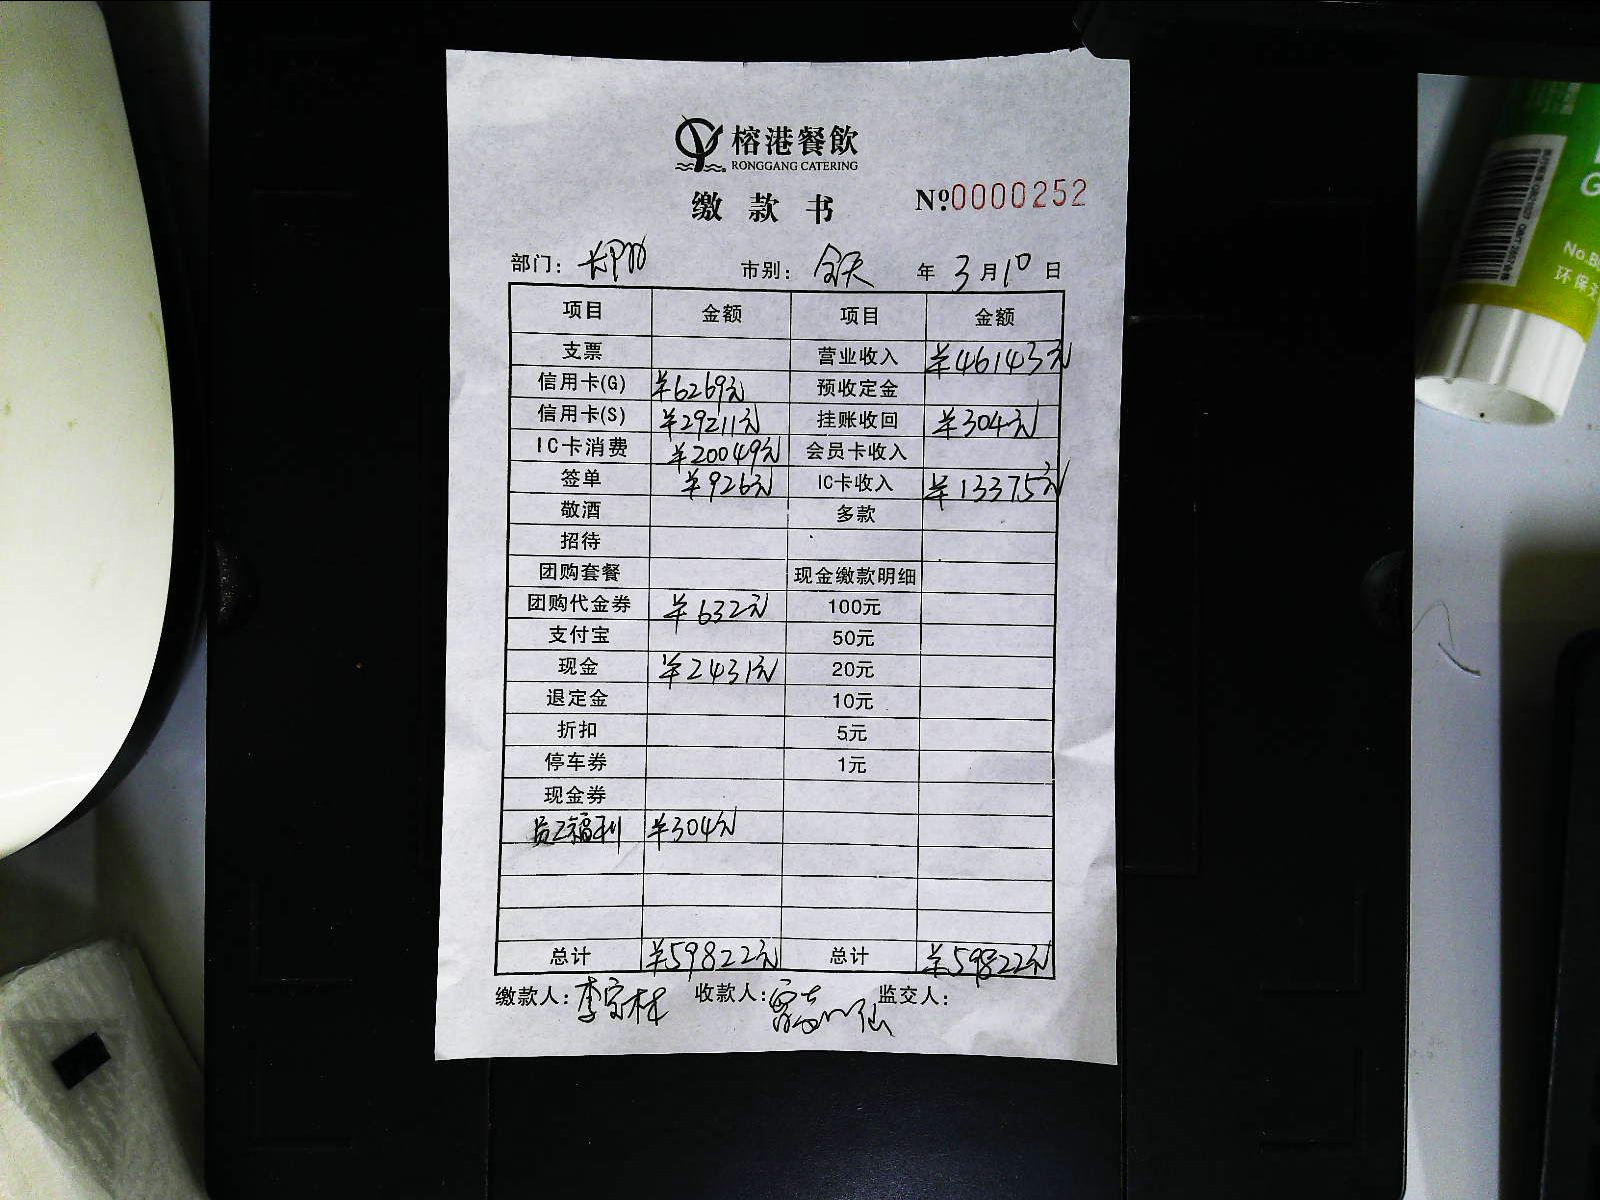 榕港餐飲
RONGGANG CATERING
缴款书 Nº.0000252
部门： 市别：全天 年3月10日
项目 金额 项目 金额
支票 营业收入 ¥46143元
信用卡(G) ¥6269元 预收定金
信用卡(S) ¥29211元 挂账收回 ¥304元
IC卡消费 ¥20049元 会员卡收入
签单 ¥926元 IC卡收入 ¥13375元
敬酒 多款
招待
团购套餐 现金缴款明细
团购代金券 ¥632元 100元
支付宝 50元
现金 ¥2431元 20元
退定金 10元
折扣 5元
停车券 1元
现金券
员工福利 ¥304元
总计 ¥59822元 总计 ¥59822元
缴款人：李家林 收款人： 监交人：
No.B
环保